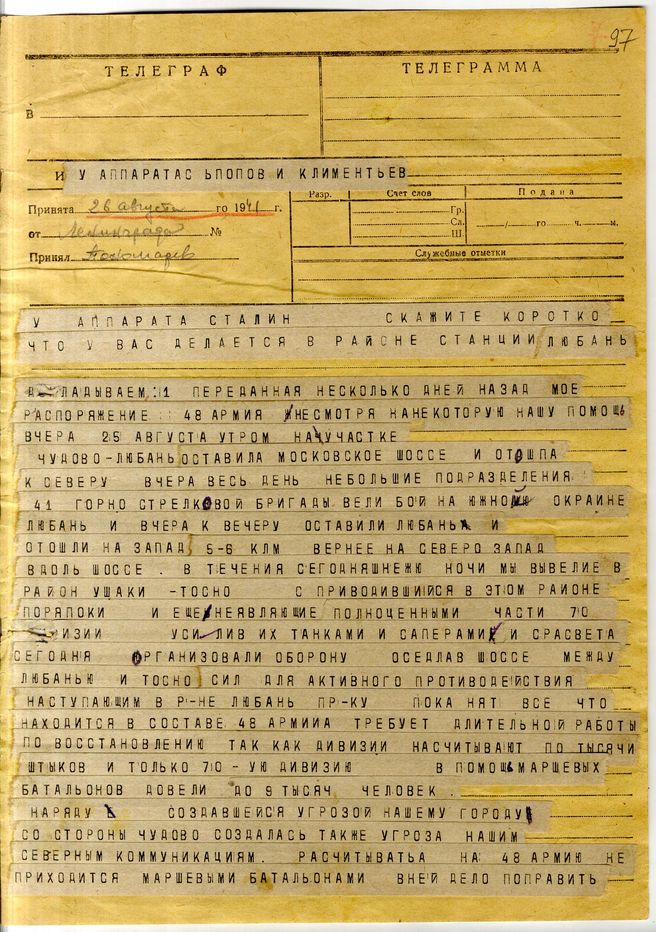 97
ТЕЛЕГРАФ
ТЕЛЕГРАММА
В
И У АППАРАТАС ЬПОПОВ И КЛИМЕНТЬЕВ
Принята 26 августа го 1941 г.
Разр.
Счет слов
Подана
от Ленинграда №
Гр.
Сл.
Ш.
/ го ч. м.
Принял Пономарев
Служебные отметки
У АППАРАТА СТАЛИН СКАЖИТЕ КОРОТКО
ЧТО У ВАС ДЕЛАЕТСЯ В РАЙОНЕ СТАНЦИИ ЛЮБАНЬ
ДОКЛАДЫВАЕМ:1 ПЕРЕДАННАЯ НЕСКОЛЬКО ДНЕЙ НАЗАД МОЕ
РАСПОРЯЖЕНИЕ :: 48 АРМИЯ НЕСМОТРЯ НАНЕКОТОРУЮ НАШУ ПОМОЩЬ
ВЧЕРА 25 АВГУСТА УТРОМ НА УЧАСТКЕ
ЧУДОВО-ЛЮБАНЬ ОСТАВИЛА МОСКОВСКОЕ ШОССЕ И ОТОШЛА
К СЕВЕРУ ВЧЕРА ВЕСЬ ДЕНЬ НЕБОЛЬШИЕ ПОДРАЗДЕЛЕНИЯ
41 ГОРНО СТРЕЛКОВОЙ БРИГАДЫ ВЕЛИ БОЙ НА ЮЖНОЙ ОКРАИНЕ
ЛЮБАНЬ И ВЧЕРА К ВЕЧЕРУ ОСТАВИЛИ ЛЮБАНЬ И
ОТОШЛИ НА ЗАПАД 5-6 КЛМ ВЕРНЕЕ НА СЕВЕРО ЗАПАД
ВДОЛЬ ШОССЕ . В ТЕЧЕНИЯ СЕГОДНЯШНЕЖЮ НОЧИ МЫ ВЫВЕЛИЕ В
РАЙОН УШАКИ -ТОСНО С ПРИВОДИВШИЙСЯ В ЭТОМ РАЙОНЕ
ПОРЯПОКИ И ЕЩЕ НЕЯВЛЯЮЩИЕ ПОЛНОЦЕННЫМИ ЧАСТИ 70
ДИВИЗИИ УСИЛИВ ИХ ТАНКАМИ И САПЕРАМИ И СРАСВЕТА
СЕГОДНЯ ОРГАНИЗОВАЛИ ОБОРОНУ ОСЕДЛАВ ШОССЕ МЕЖДУ
ЛЮБАНЬЮ И ТОСНО СИЛ ДЛЯ АКТИВНОГО ПРОТИВОДЕЙСТВИЯ
НАСТУПАЮЩИМ В Р-НЕ ЛЮБАНЬ ПР-КУ ПОКА НЯТ ВСЕ ЧТО
НАХОДИТСЯ В СОСТАВЕ 48 АРМИИА ТРЕБУЕТ ДЛИТЕЛЬНОЙ РАБОТЫ
ПО ВОССТАНОВЛЕНИЮ ТАК КАК ДИВИЗИИ НАСЧИТЫВАЮТ ПО ТЫСЯЧИ
ШТЫКОВ И ТОЛЬКО 70-УЮ ДИВИЗИЮ В ПОМОЩЬ МАРШЕВЫХ
БАТАЛЬОНОВ ДОВЕЛИ ДО 9 ТЫСЯЧ ЧЕЛОВЕК .
НАРЯДУ С СОЗДАВШЕЙСЯ УГРОЗОЙ НАШЕМУ ГОРОДУ
СО СТОРОНЫ ЧУДОВО СОЗДАЛАСЬ ТАКЖЕ УГРОЗА НАШИМ
СЕВЕРНЫМ КОММУНИКАЦИЯМ. РАСЧИТЫВАТЬА НА 48 АРМИЮ НЕ
ПРИХОДИТСЯ МАРШЕВЫМИ БАТАЛЬОНАМИ ВНЕЙ ДЕЛО ПОПРАВИТЬ